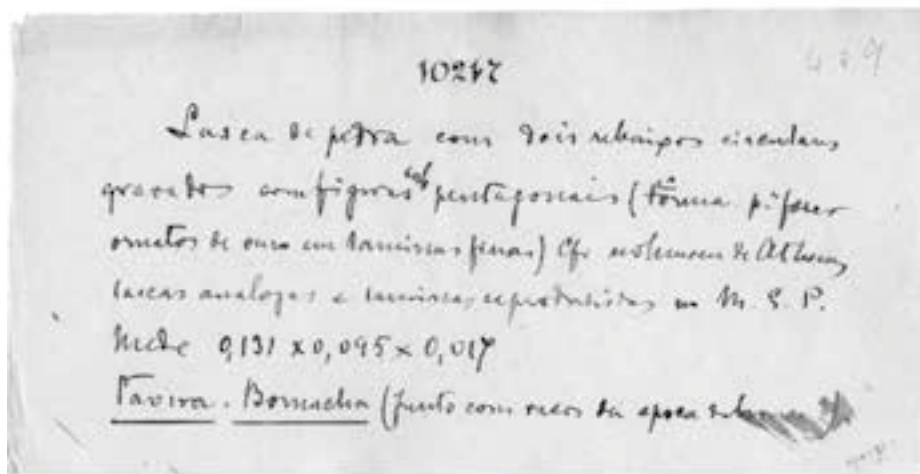 10247
Lasca de pedra com dois rebaixos circulares
gravados com figuras pentagonais (fôrma p.ª fazer
ornatos de ouro em laminas finas) Cfr no museu de Athenas
lascas analogas e laminas, reproduzidas no M. S. P.
Mede 0,131 x 0,095 x 0,017
Tavira. Bornacha (junto com vasos da epoca